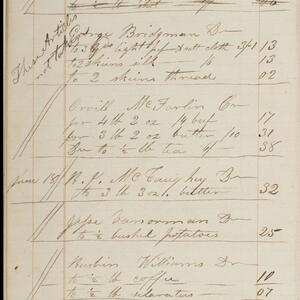 George Bridgman Dr
to 3 yds light cloth 3/1 13
to 2 skins silk 13
to 2 skins thread 02
These Articles
not taken
Orrill McFarlin Cr
for 4 lb 2 oz beef 17
for 3 lb 2 oz butter /10 31
Dr to ½ lb tea 38
June 18
R. P. McCaughey Dr
to 3 lb 3 oz. butter 32
Jesse Vanorman Dr
to ½ bushel potatoes 25
Reubin Williams Dr
to ½ lb coffee 10
to ½ lb saleratus 07